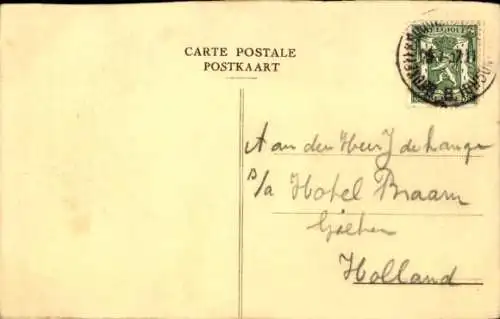 CARTE POSTALE
POSTKAART
BELGIQUE
Aan den Heer J de Lange
p/a Hotel Braam
Holland